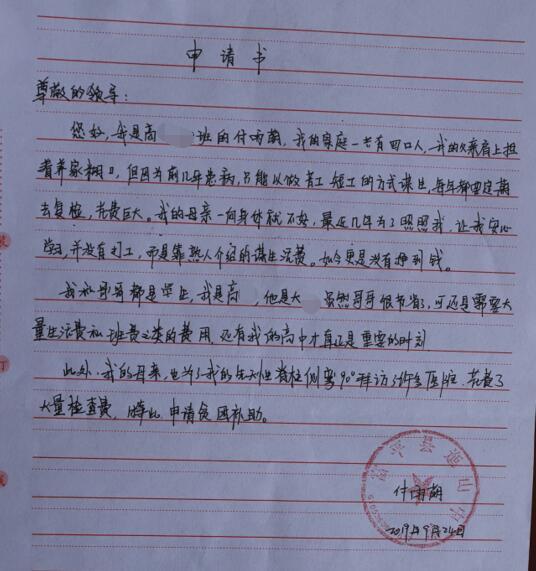 申请书
尊敬的领导:
您好,我是高 班的付雨萌,我的家庭一共有四口人,我的父亲肩上担
着养家糊口,但因为前几年患病,只能以做着工短工的方式谋生,每年都要定期
去复检,花费巨大。我的母亲一向身体就不好,最近几年为了照照我,让我安心
学习,并没有打工,而是靠熟人介绍的谋生活费。如今更是没有挣到钱。
我和哥哥都是学生,我是高 ,他是大 虽然哥哥很节省,可还是需要大
量生活费和班费之类的费用,还有我的高中才真正是重要的时刻
此外,我的母亲,也为了我的先天性脊柱侧弯90°拜访了许多医院,花费了
大量检查费,特此申请贫困补助。
付雨萌
2019年9月24日